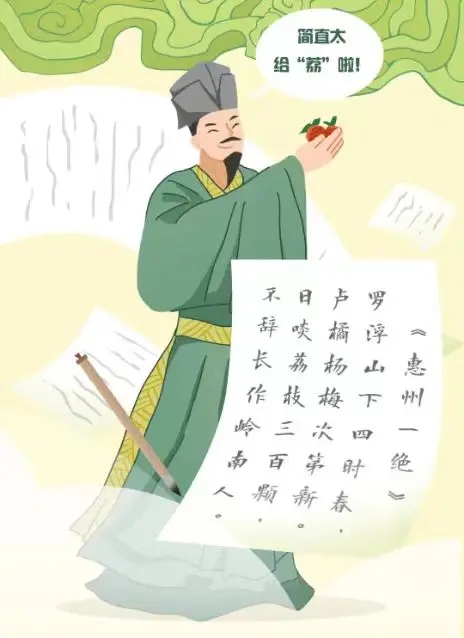 简直太
给“荔”啦！
《惠州一绝》
罗浮山下四时春，
卢橘杨梅次第新。
日啖荔枝三百颗，
不辞长作岭南人。